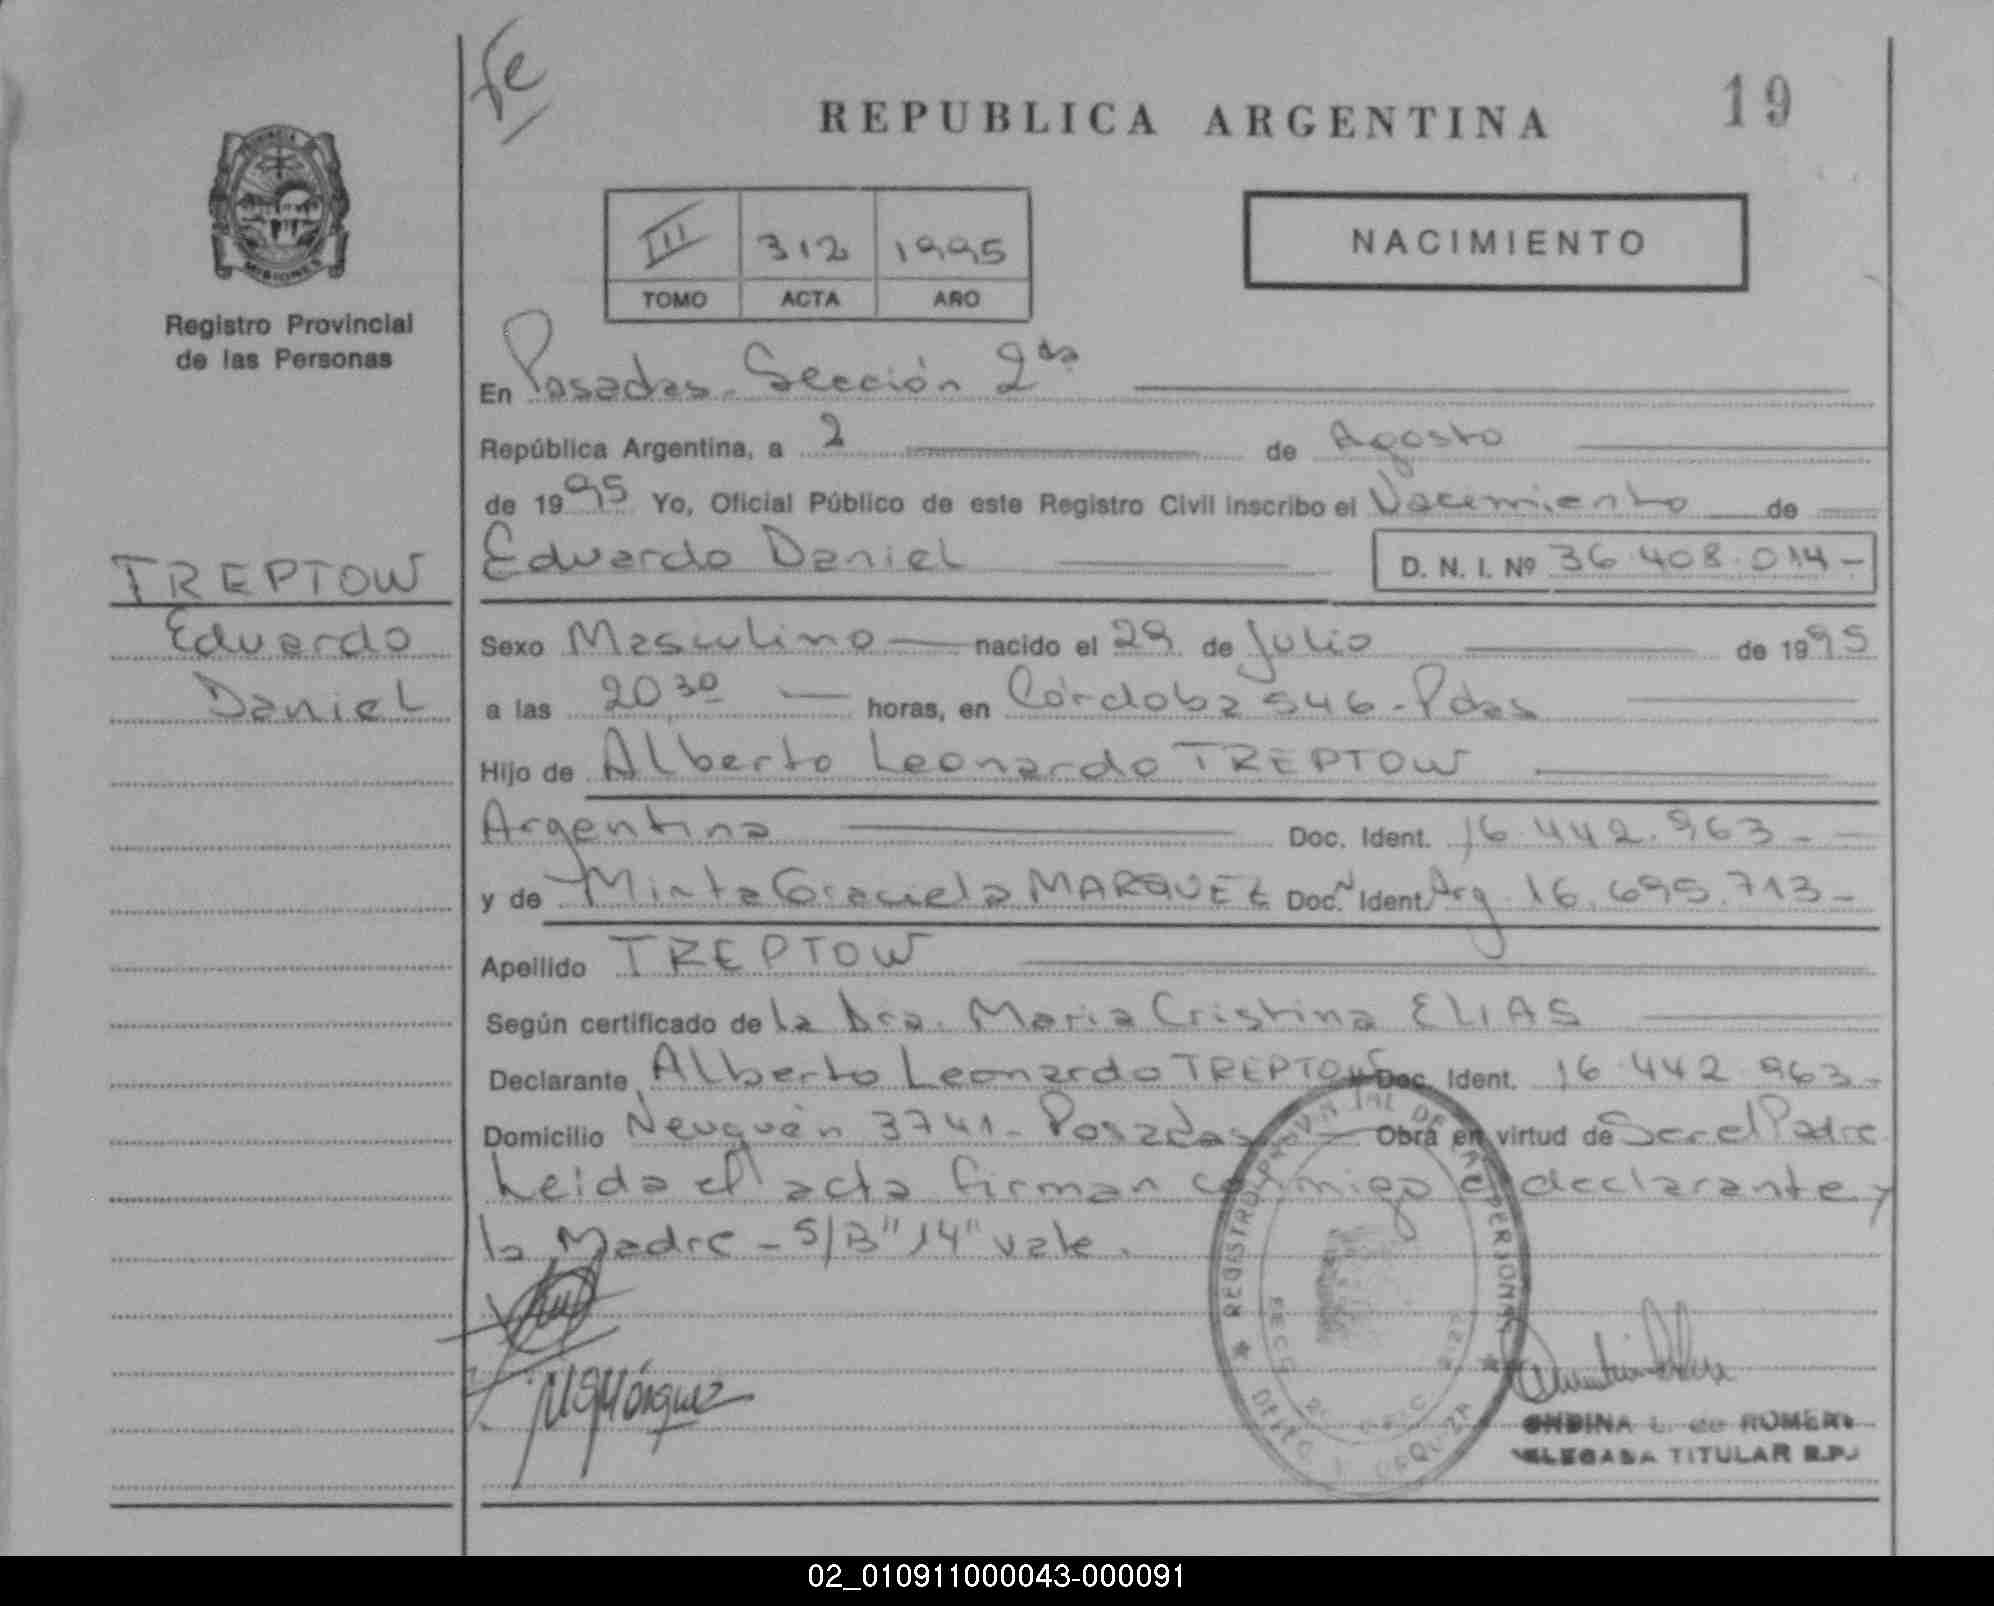 fe
REPUBLICA ARGENTINA
19
MISIONES
Registro Provincial
de las Personas
III 312 1995
TOMO ACTA AÑO
NACIMIENTO
En Posadas - Sección 2da
República Argentina, a 2 de Agosto
de 1995 Yo, Oficial Público de este Registro Civil inscribo el Nacimiento de
TREPTOW
Eduardo
Daniel
Eduardo Daniel D. N. I. Nº 36.408.014-
Sexo Masculino nacido el 29 de Julio de 1995
a las 20 30 horas, en Córdoba 546 - Pdas
Hijo de Alberto Leonardo TREPTOW
Argentina Doc. Ident. 16.442.963-
y de Mirta Graciela MARQUEZ Doc. Ident. Arg. 16.695.713-
Apellido TREPTOW
Según certificado de la Dra. Maria Cristina ELIAS
Declarante Alberto Leonardo TREPTOW Doc. Ident. 16.442.963-
Domicilio Neuquén 3741 - Posadas Obra en virtud de Ser el Padre
Leida el acta firman conmigo el declarante y
la Madre - S/B "14" vale.
MGMárquez
REGISTRO PROVINCIAL DE LAS PERSONAS
ONDINA L. de ROMERO
DELEGADA TITULAR R.P.
02_010911000043-000091